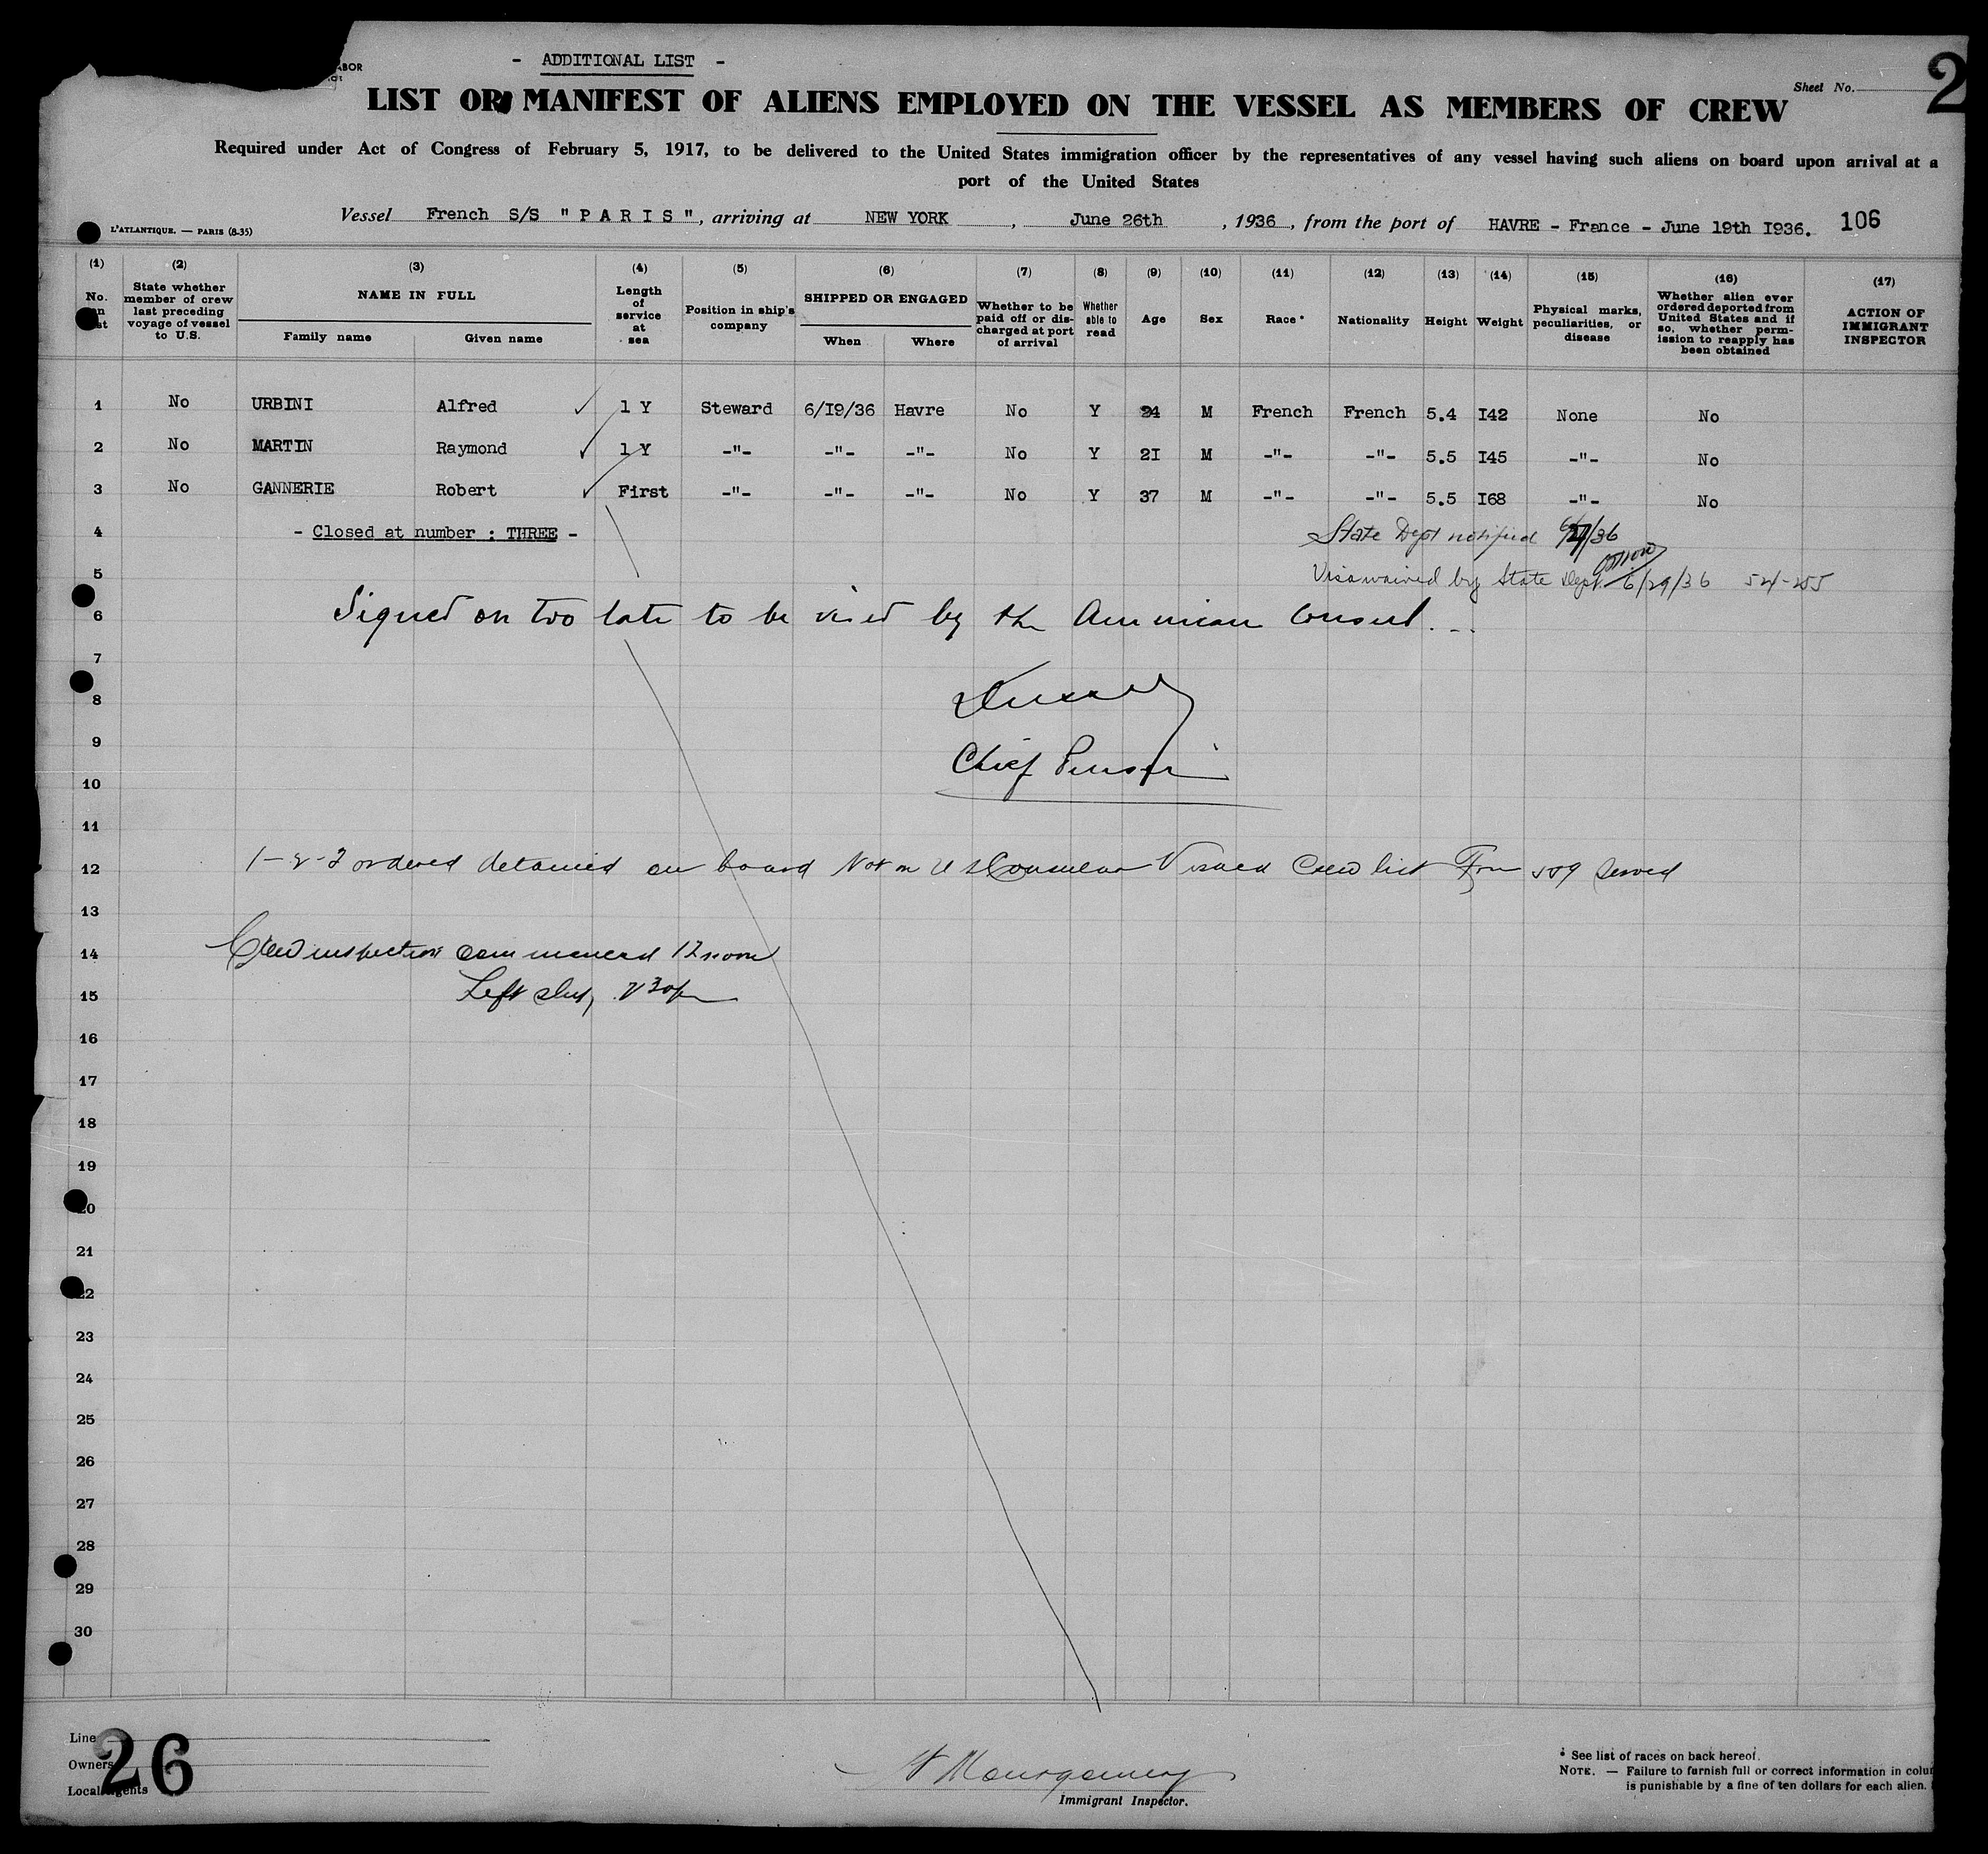 ABOR
- ADDITIONAL LIST -
Sheet No. 2
LIST OR MANIFEST OF ALIENS EMPLOYED ON THE VESSEL AS MEMBERS OF CREW
Required under Act of Congress of February 5, 1917, to be delivered to the United States immigration officer by the representatives of any vessel having such aliens on board upon arrival at a
port of the United States
Vessel French S/S " P A R I S ", arriving at NEW YORK , June 26th , 1936, from the port of HAVRE - France - June 19th I936. 106
L'ATLANTIQUE. — PARIS (8-35)
(1) (2) (3) (4) (5) (6) (7) (8) (9) (10) (11) (12) (13) (14) (15) (16) (17)
No. on list
State whether member of crew last preceding voyage of vessel to U.S.
NAME IN FULL
Family name Given name
Length of service at sea
Position in ship's company
SHIPPED OR ENGAGED
When Where
Whether to be paid off or discharged at port of arrival
Whether able to read
Age
Sex
Race *
Nationality
Height
Weight
Physical marks, peculiarities, or disease
Whether alien ever ordered deported from United States and if so, whether permission to reapply has been obtained
ACTION OF IMMIGRANT INSPECTOR
1 No URBINI Alfred ✓ 1 Y Steward 6/I9/36 Havre No Y 24 M French French 5.4 I42 None No
2 No MARTIN Raymond ✓ 1 Y -"- -"- -"- No Y 2I M -"- -"- 5.5 I45 -"- No
3 No GANNERIE Robert ✓ First -"- -"- -"- No Y 37 M -"- -"- 5.5 I68 -"- No
4 - Closed at number : THREE - State Dept notified 6/27/36
5 Visa waived by State Dept 6/29/36 54-255
6 Signed on too late to be vised by the American Consul.
7
8
9 Chief Purser
10
11
12 1-2-3 ordered detained on board Not on U S Consular Visaed Crew list Form 509 Served
13
14 Crew inspection commenced 12 noon
15 Left ship
16
17
18
19
20
21
22
23
24
25
26
27
28
29
30
Line
Owners
Local Agents
26
Montgomery
Immigrant Inspector.
* See list of races on back hereof.
NOTE. — Failure to furnish full or correct information in colu
is punishable by a fine of ten dollars for each alien.